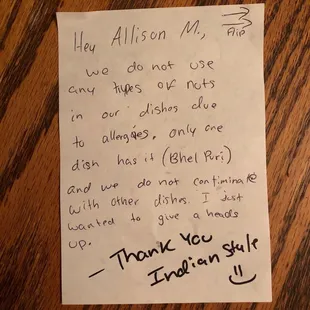 Hey Allison M.,
Flip
we do not use
any types of nuts
in our dishes due
to allergies, only one
dish has it (Bhel Puri)
and we do not contiminate
with other dishes. I just
wanted to give a heads
up.
- Thank You
Indian Style